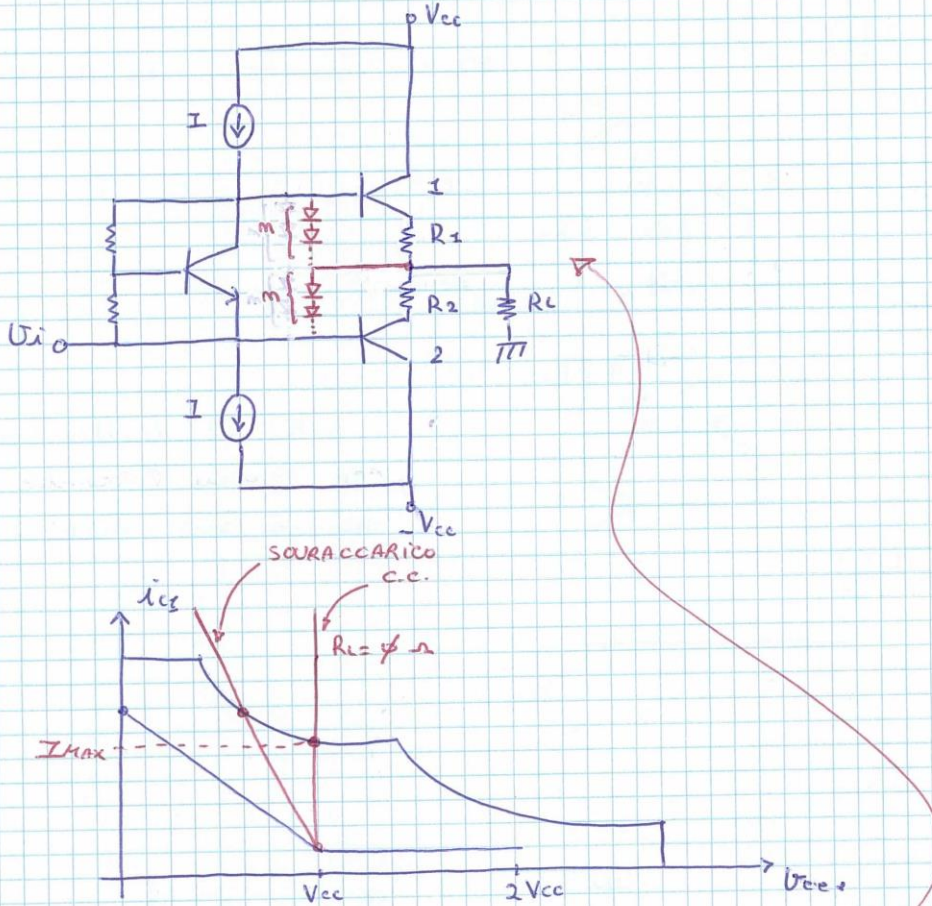 Vcc
I
1
n
R1
n
R2
RL
Ui
2
I
-Vcc
SOVRACCARICO
C.C.
ic1
RL = ϕ Ω
IMAX
Vcc
2Vcc
Vce1